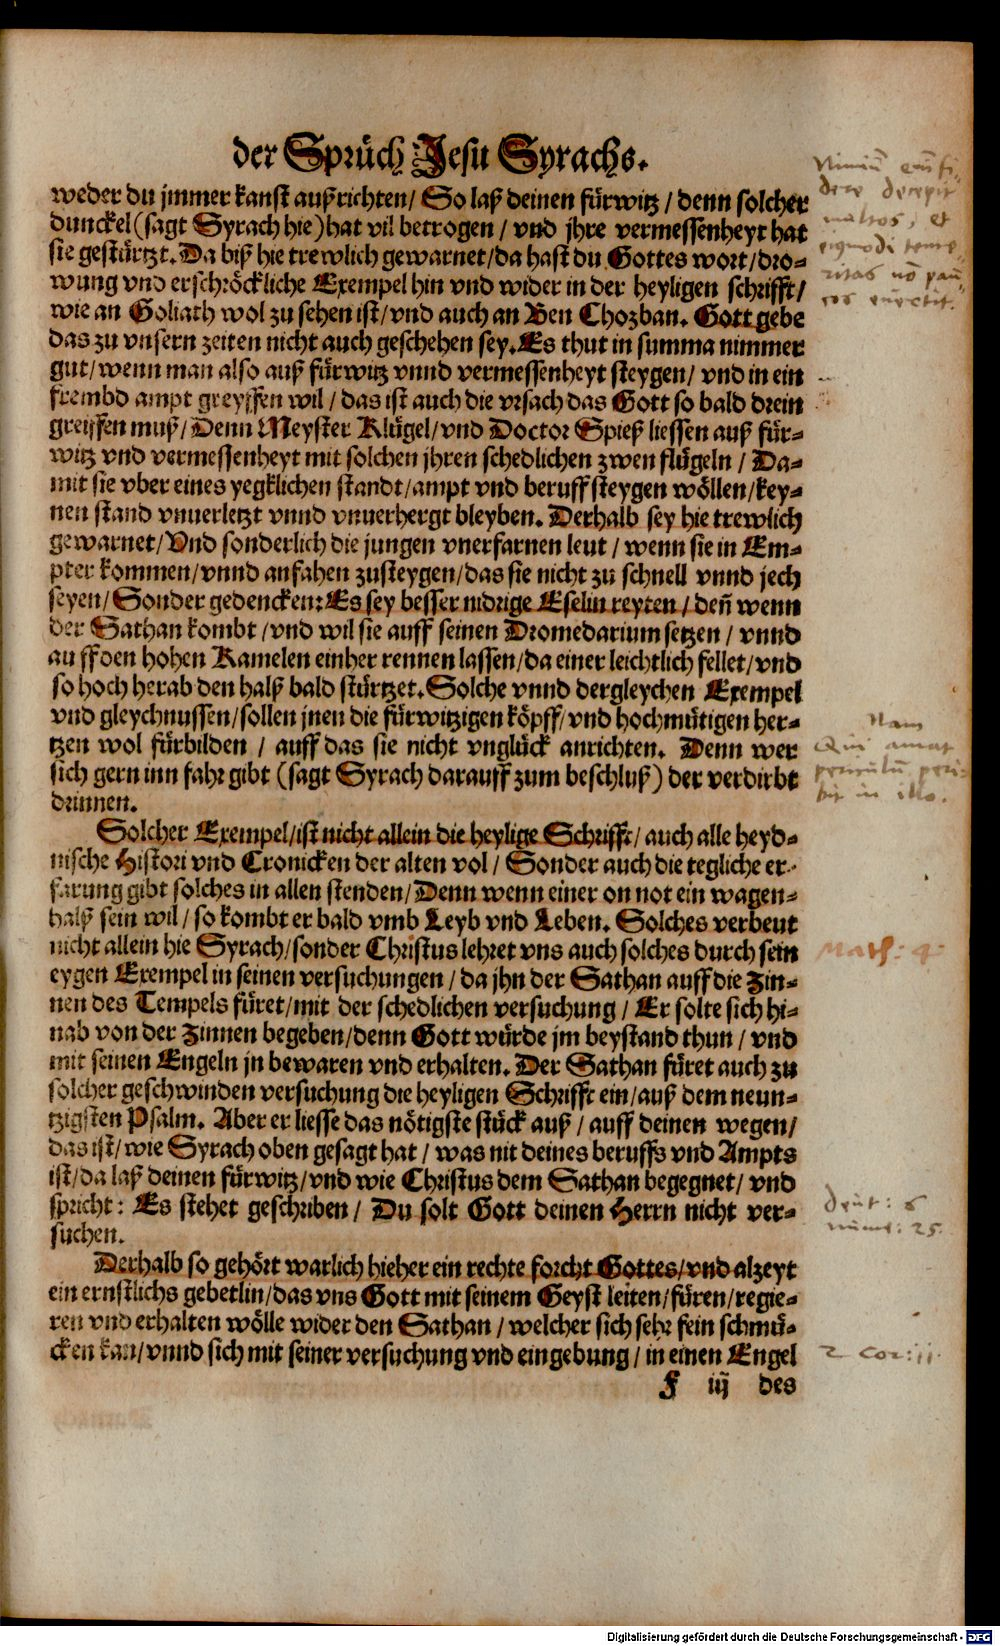 der Sprüch Jesu Syrachs.
weder du jmmer kanst außrichten/ So laß deinen fürwitz / denn solcher
dunckel (sagt Syrach hie) hat vil betrogen / vnd jhre vermessenheyt hat
sie gestürtzt. Da biß hie trewlich gewarnet/da hast du Gottes wort/dro-
wung vnd erschröckliche Exempel hin vnd wider in der heyligen schrifft/
wie an Goliath wol zu sehen ist/vnd auch an Ben Chozban. Gott gebe
das zu vnsern zeiten nicht auch geschehen sey. Es thut in summa nimmer
gut/wenn man also auß fürwitz vnnd vermessenheyt steygen/ vnd in ein
frembd ampt greyffen wil / das ist auch die vrsach das Gott so bald drein
greiffen muß/ Denn Meyster Klügel/vnd Doctor Spieß liessen auß für-
witz vnd vermessenheyt mit solchen jhren schedlichen zwen flügeln / Da-
mit sie vber eines yegklichen standt/ampt vnd beruff steygen wöllen/key-
nen stand vnuerletzt vnnd vnuerhergt bleyben. Derhalb sey hie trewlich
gewarnet/Vnd sonderlich die jungen vnerfarnen leut / wenn sie in Em-
pter kommen/vnnd anfahen zusteygen/das sie nicht zu schnell vnnd jech
seyen/Sonder gedencken: Es sey besser nidrige Eselin reyten / deñ wenn
der Sathan kombt /vnd wil sie auff seinen Dromedarium setzen / vnnd
auff den hohen Kamelen einher rennen lassen/da einer leichtlich fellet/vnd
so hoch herab den halß bald stürtzet. Solche vnnd dergleychen Exempel
vnd gleychnussen/sollen jnen die fürwitzigen köpff/vnd hochmütigen her-
tzen wol fürbilden / auff das sie nicht vnglück anrichten. Denn wer
sich gern inn fahr gibt (sagt Syrach darauff zum beschluß) der verdirbt
drinnen.
Solcher Exempel/ist nicht allein die heylige Schrifft/auch alle heyd-
nische Histori vnd Cronicken der alten vol / Sonder auch die tegliche er-
farung gibt solches in allen stenden/Denn wenn einer on not ein wagen-
halß sein wil/so kombt er bald vmb Leyb vnd Leben. Solches verbeut
nicht allein hie Syrach/sonder Christus lehret vns auch solches durch sein
eygen Exempel in seinen versuchungen / da jhn der Sathan auff die Zin-
nen des Tempels füret/mit der schedlichen versuchung / Er solte sich hi-
nab von der Zinnen begeben/denn Gott würde jm beystand thun / vnd
mit seinen Engeln jn bewaren vnd erhalten. Der Sathan füret auch zu
solcher geschwinden versuchung die heyligen Schrifft ein/auß dem neun-
tzigsten Psalm. Aber er liesse das nötigste stück auß / auff deinen wegen/
das ist/wie Syrach oben gesagt hat / was nit deines beruffs vnd Ampts
ist/da laß deinen fürwitz/vnd wie Christus dem Sathan begegnet/ vnd
spricht: Es stehet geschriben / Du solt Gott deinen Herrn nicht ver-
suchen.
Derhalb so gehört warlich hieher ein rechte forcht Gottes/vnd alzeyt
ein ernstlichs gebetlin/das vns Gott mit seinem Geyst leiten/füren/regie-
ren vnd erhalten wölle wider den Sathan / welcher sich sehr fein schmü-
cken kan/vnnd sich mit seiner versuchung vnd eingebung / in einen Engel
F iij des
decepit
multos, et
Nam
Qui amat
periculū peri-
bit in illo.
Math: 4
Deut: 6
nume: 25.
2 Cor: 11.
Digitalisierung gefördert durch die Deutsche Forschungsgemeinschaft - DFG